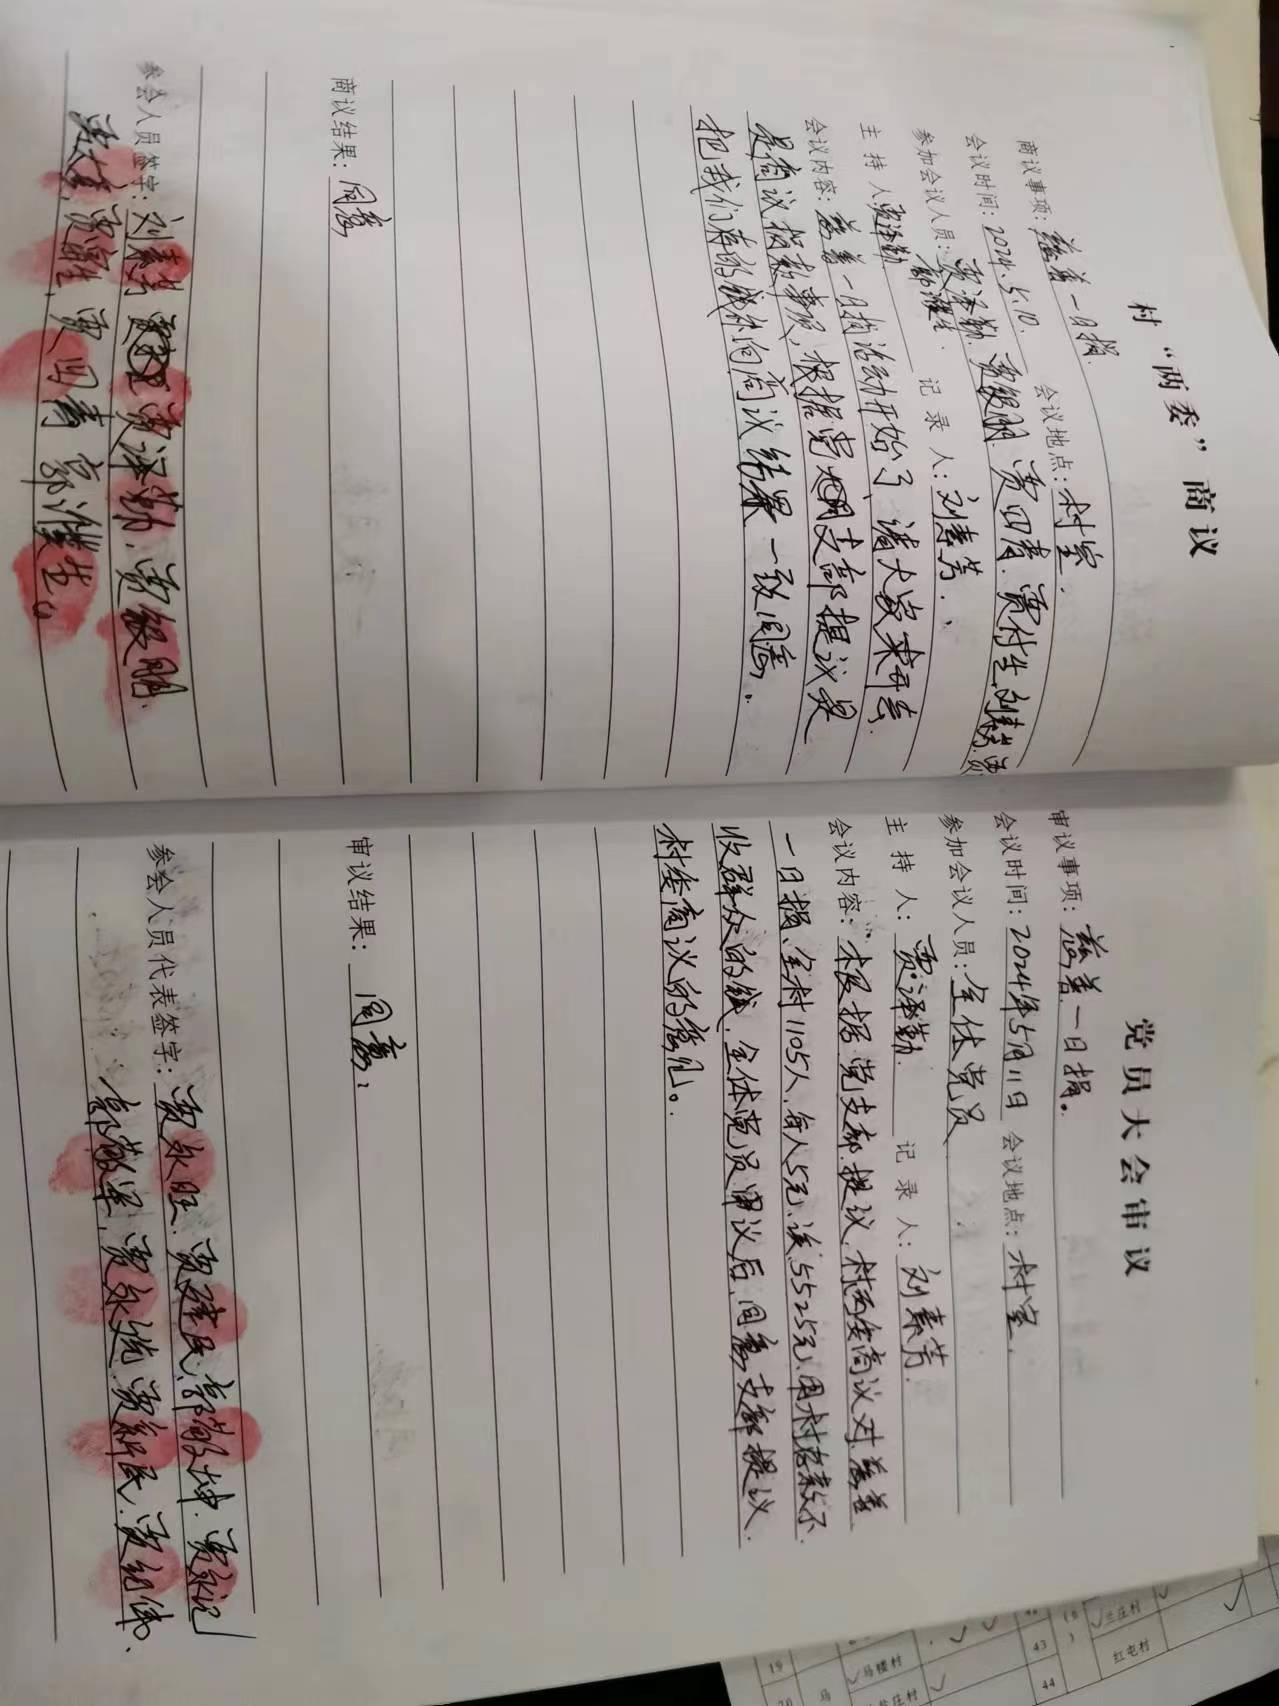 村“两委”商议
商议事项：慈善一日捐.
会议时间：2024.5.10. 会议地点：村室.
参加会议人员：贾泽勤.贾银朋.贾四青.贾付生.刘素芳.贾
郭濮生.
主 持 人贾泽勤 记 录 人：刘素芳.
会议内容：慈善一日捐活动开始了,请大家来开会.
是商议捐款事项,根据党支部提议是
把我们存的钱补向商议结果一致同意.
商议结果：同意
参会人员签字：刘素芳 贾泽勤.贾银朋.
贾四青 郭濮生
党员大会审议
审议事项：慈善一日捐。
会议时间：2024年5月11日 会议地点：村室.
参加会议人员：全体党员
主 持 人：贾泽勤. 记 录 人：刘素芳.
会议内容：根据党支部提议.村两委商议对慈善
一日捐、全村1105人.每人5元.该5525元.用村存款不
收群众的钱.全体党员审议后,同意支部提议.
村委商议的意见。
审议结果：同意
参会人员代表签字：贾永旺.贾建民.郭敬坤.贾永记
郭敬军,贾永选.贾新民.贾纪伟.
19
马楼村
43
44
兰庄村
红屯村